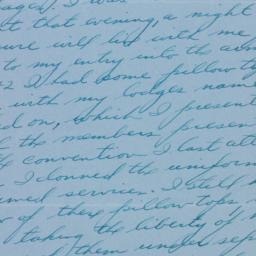 aged). I was
at that evening, a night
ure will be with me
to my entry into the arm
I had some pillow to
with my lodges name
ed on, which I present
the members presen
convention I last att
I donned the uniform
med service. I still
of these pillow tops
taking the liberty of
them under sep